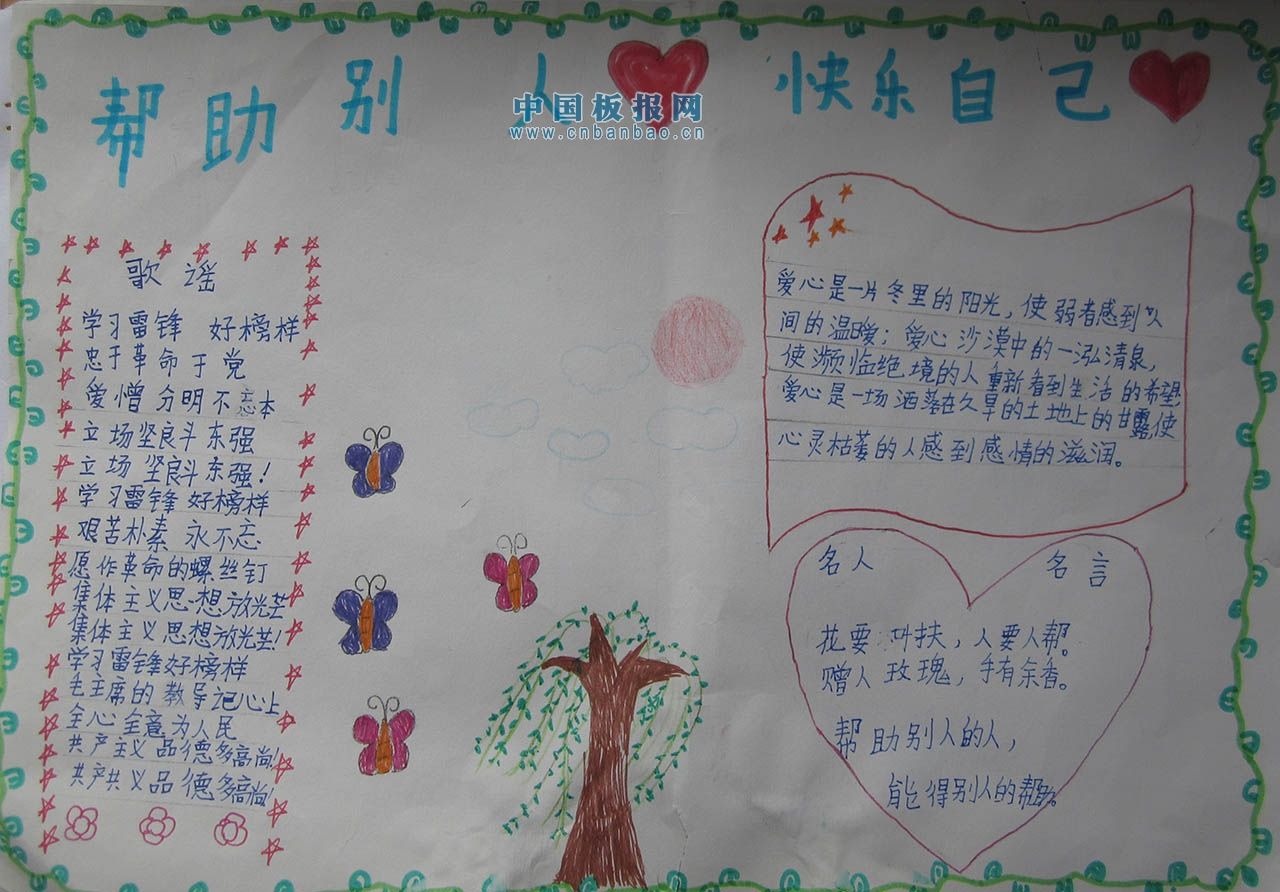 帮助别人 快乐自己
中国板报网
www.cnbanbao.cn
歌谣
学习雷锋 好榜样
忠于革命于党
爱憎分明不忘本
立场坚良斗东强
立场坚良斗东强!
学习雷锋 好榜样
艰苦朴素 永不忘
愿作革命的螺丝钉
集体主义思想放光芒
集体主义思想放光芒!
学习雷锋好榜样
毛主席的教导记心上
全心全意为人民
共产主义品德多高尚!
共产共义品德多高尚!
爱心是一片冬里的阳光,使弱者感到人
间的温暖;爱心沙漠中的一泓清泉,
使濒临绝境的人重新看到生活的希望
爱心是一场洒落在久旱的土地上的甘露,使
心灵枯萎的人感到感情的滋润。
名人 名言
花要叶扶,人要人帮。
赠人玫瑰,手有余香。
帮助别人的人,
能得别人的帮助。